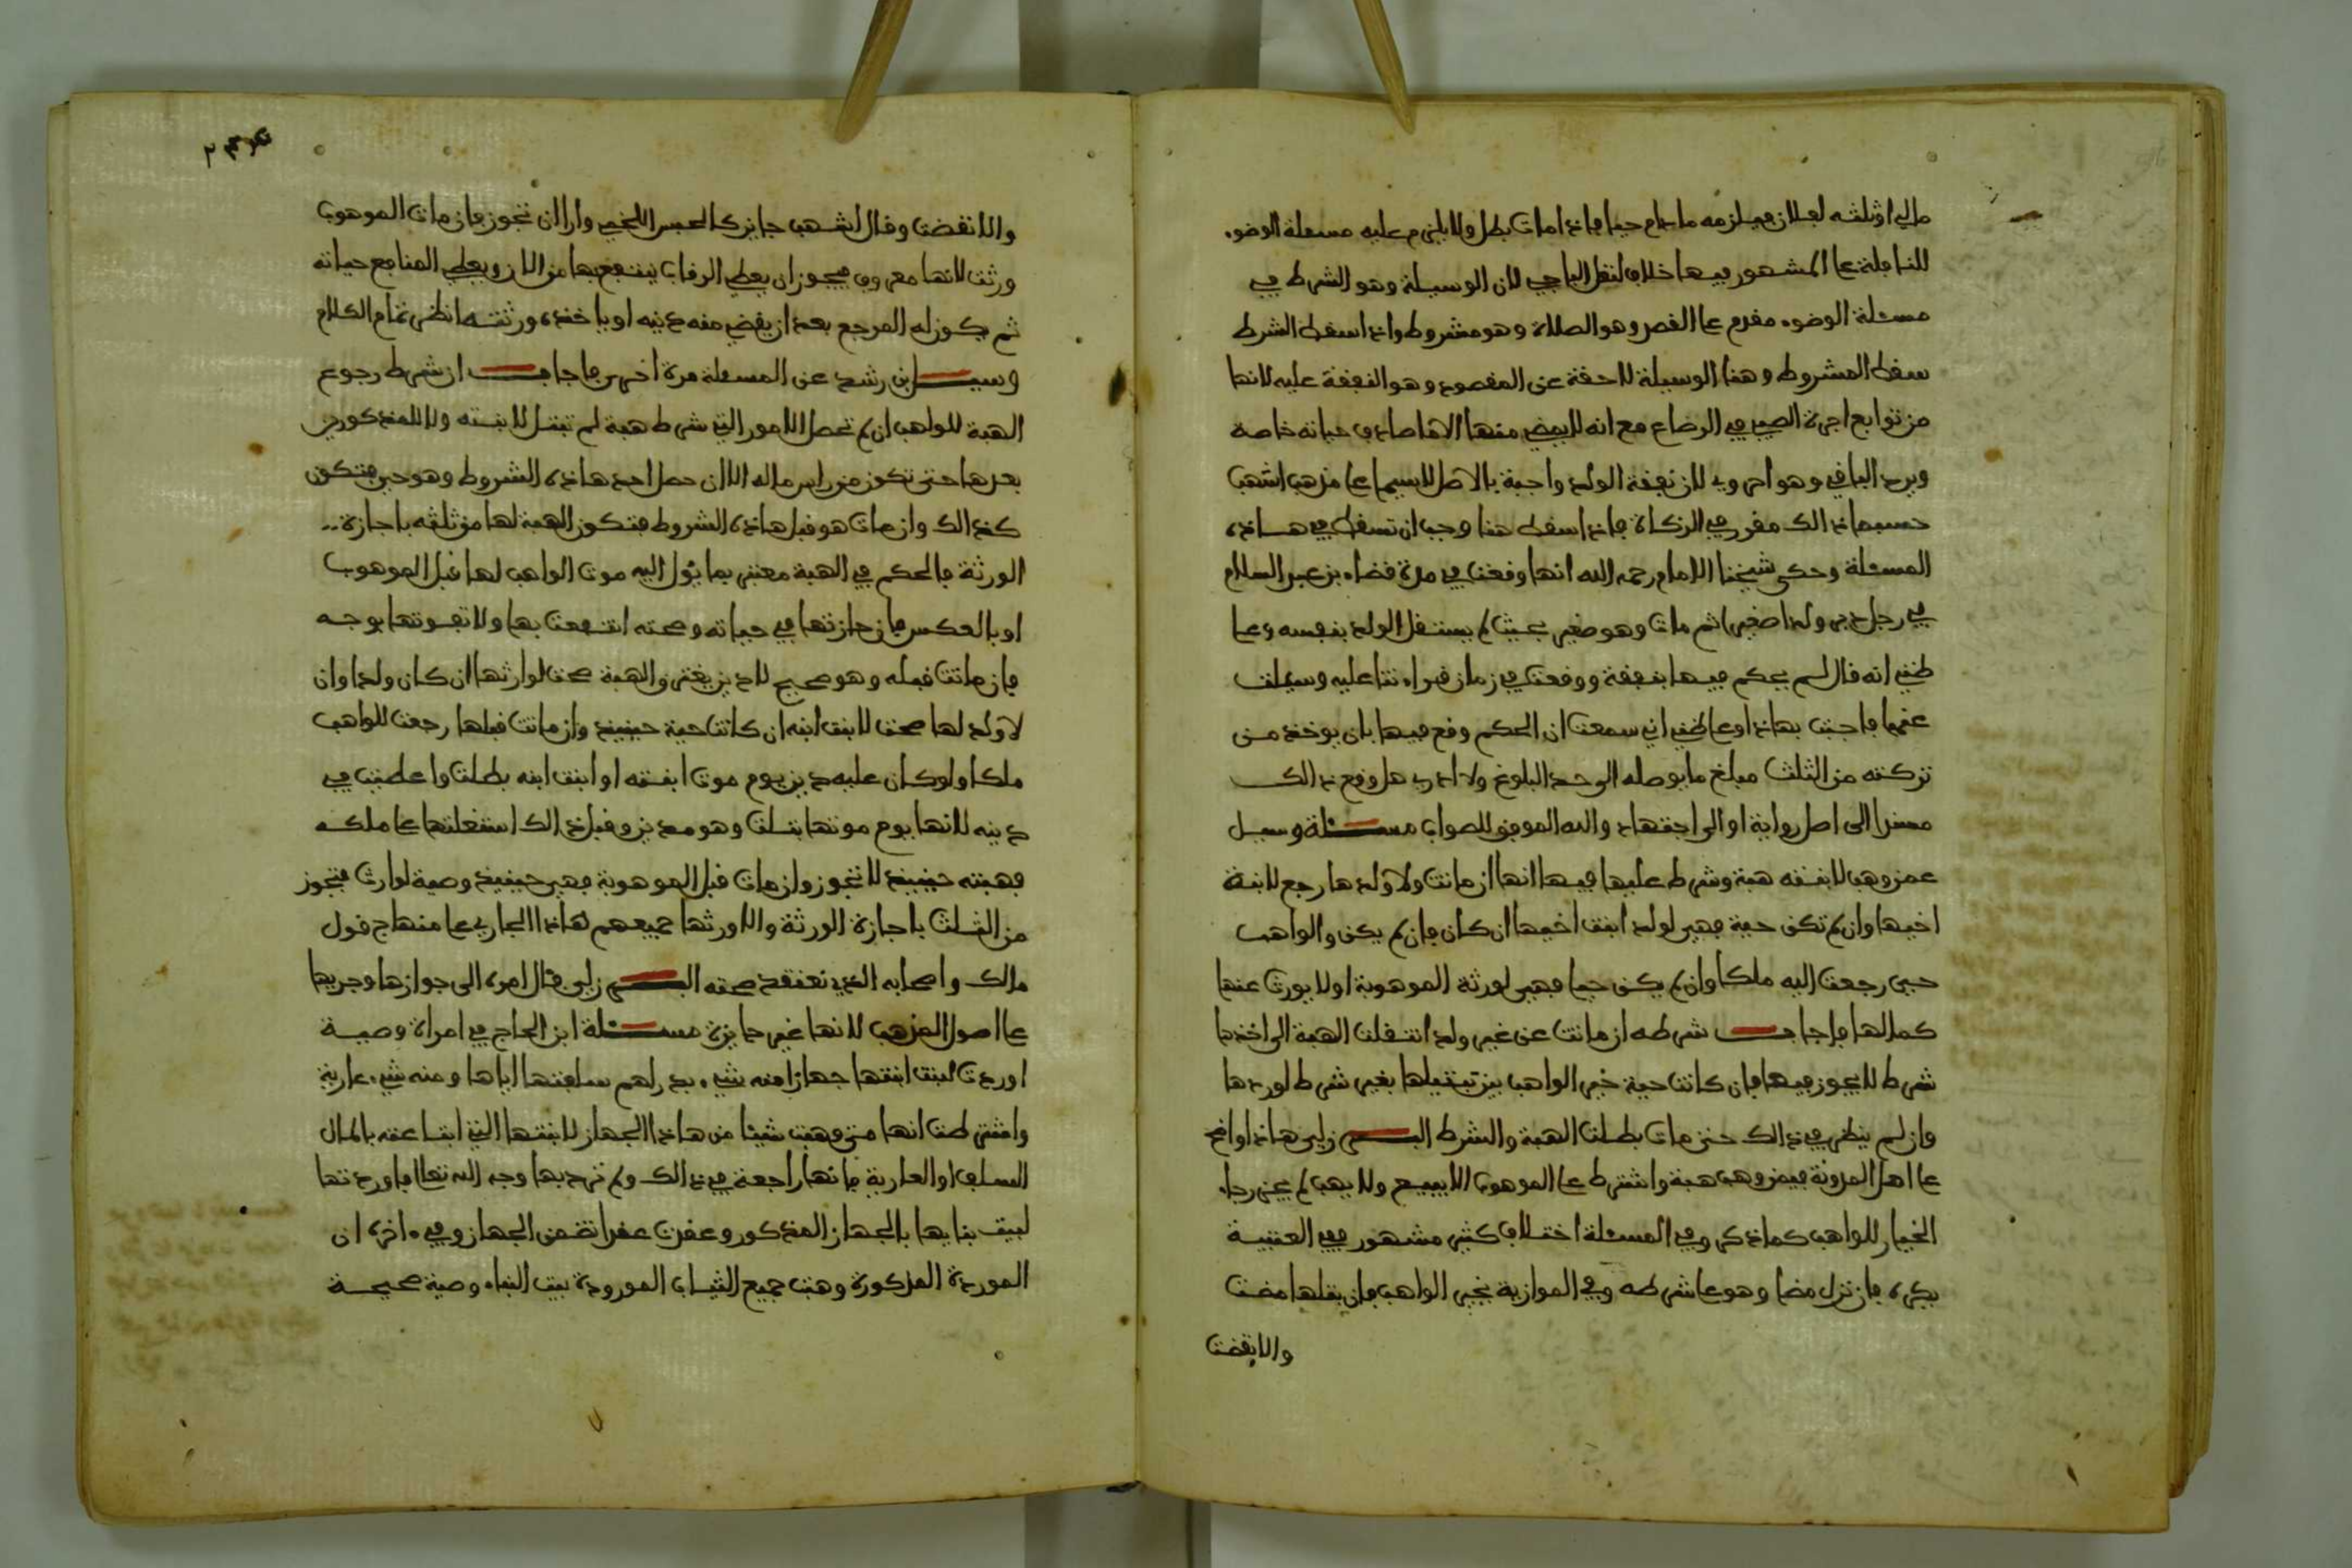 مالي او ثلثه لفلان فيلزمه مادام حيا فاذا مات بطل ولا يلزم عليه مسئلة الوضوء
للنافلة على المشهور فيها خلاف لنقل الباجي لان الوسيلة وهو الشرط في
مسئلة الوضوء مقدم على القصد وهو الصلاة وهو مشروط واذا سقط الشرط
سقط المشروط وهنا الوسيلة لاحقة عن المقصود وهو النفقة عليه لانها
من توابع اجرة الصبي في الرضاع مع انه لا يمضي منها الا ما صادف حياته خاصة
ويرد الباقي وهو احروي لان نفقة الولد واجبة بالاصل لاسيما على مذهب اشهب
حسبما ذالك مقرر في الزكاة فاذا سقط هنا وجب ان تسقط في هاذه
المسئلة وحكى شيخنا الامام رحمه الله انها وقعت في مدة قضاء بن عبد السلام
في رجل دبى ولدا صغيرا ثم مات وهو صغير بحيث لم يستقل الولد بنفسه وعلى
ظني انه قال لم يحكم فيها بنفقة ووقعت في زمان قراءتنا عليه وسئلت
عنها فاجبت بهاذا وعلى ظني اني سمعت ان الحكم وقع فيها بان يوخذ من
تركته من الثلث مبلغ ما يوصله الى حد البلوغ ولا ادري هل وقع ذالك
مسندا الى اصل رواية او الى اجتهاد والله الموفق للصواب مسئلة وسيل
عمن وهب لابنته هبة وشرط عليها فيها انها ان ماتت ولا ولد لها رجع لابنة
اخيها وان لم تكن حية فهي لولد ابنت اخيها ان كان فان لم يكن والواهب
حي رجعت اليه ملكا وان لم يكن حيا فهي لورثة الموهوبة او لا يورث عنها
كمالها فاجاب شرطه ان ماتت عن غير ولد انتقلت الهبة الى اخذها
شرط لا يجوز فيها فان كانت حية خير الواهب بين تبتيلها بغير شرط لورثها
وان لم ينظر في ذالك حتى مات بطلت الهبة والشرط البرزلي هاذا واضح
على اصل المدونة فيمن وهب هبة واشترط على الموهوب الا يبيع ولا يهب لم يجز رجاء
الخيار للواهب كما ذكر وفي المسئلة اختلاف كثير مشهور ففي العتبية
يكره فان نزل مضا وهو على شرطه وفي الموازية يخير الواهب فان بتلها مضت
والا نقضت
والا نقضت وقال اشهب جايز كالحبس اللخمي وارا ان تجوز فان مات الموهوب
ورثت لانها معروف فيجوز ان يعطي الرقاب ينتفع بها من الان ويعطي المنافع حياته
ثم يكون له المرجع بعد ان يقضي منه دينه او ياخذه ورثته انظر تمام الكلام
وسيل ابن رشد عن المسئلة مرة اخرى فاجاب ان شرط رجوع
الهبة للواهب ان لم تحصل الامور التي شرط هبة لم تبتل لابنته ولا للمذكورين
بعدها حتى تكون من راس ماله الا ان حصل احد هاذه الشروط وهو حي فتكون
كذالك وان مات هو قبل هاذه الشروط فتكون الهبة لها من ثلثه باجازة
الورثة فالحكم في الهبة معتبر بما يؤل اليه موت الواهب لها قبل الموهوب
او بالعكس فان حازتها في حياته وصحته انتفعت بها ولا تفوتها بوجه
فان ماتت قبله وهو صحيح لا دين يغترق الهبة صحت لوارثها ان كان ولدا وان
لا ولد لها صحت لابنت ابنه ان كانت حية حينيذ وان ماتت قبلها رجعت للواهب
ملكا ولو كان عليه دين يوم موت ابنته او ابنت ابنه بطلت واعطيت في
دينه لانها يوم موتها بتلت وهو مدين وقبل ذالك استغلتها على ملكه
فهبته حينيذ لا تجوز وان مات قبل الموهوبة فهي حينيذ وصية لوارث فتجوز
من الثلث باجازة الورثة والا ورثها جميعهم هاذا الجاري على منهاج قول
مالك واصحابه الذي نعتقد صحته البرزلي فمال امره الى جوازها وجريها
على اصول المذهب لانها غير جايزة مسئلة ابن الحاج في امراة وصية
اوردت لبنت ابنتها جهازا منه شيء بدراهم سلفتها اياها ومنه شيء عارية
واشترطت انها متى وهبت شيئا من هاذا الجهاز لابنتها التي ابتاعته بالمال
السلف او العارية فانها راجعة في ذالك ولم ترد بها وجه الله تعالى فاوردتها
لبيت بنايها بالجهاز المذكور وعقدت عقدا تضمن الجهاز وفي اخره ان
الموردة المذكورة وهبت جميع الثياب الموردة بيت البناء وصية صحيحة